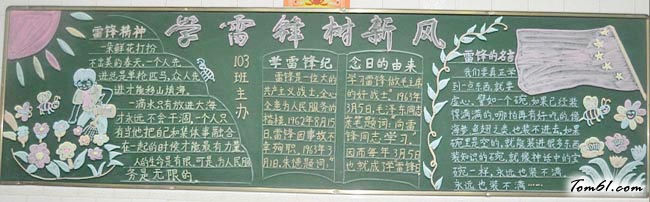 学雷锋树新风
雷锋精神
一朵鲜花打扮
不出美的春天,一个人先
进总是单枪匹马,众人先
进才能移山填海。
一滴水只有放进大海
才永远不会干涸,一个人只
有当他把自己和集体事融合
在一起的时候才能最有力量
人的生命是有限,可是,为人民服
务是无限的。
103
班
主
办
学雷锋纪
雷锋是一位大的
共产主义战士,全心
全意为人民服务的
楷模,1962年8月15
日,雷锋因事故不
幸殉职。1963年3
月5日,朱德题词。
念日的由来
学习雷锋,做毛主席
的好战士”1963年
3月5日,毛泽东同志
亲笔题词:“向雷
锋同志学习。”
因而每年3月5
日也就成了学雷锋日
雷锋的名言
我们要真正学
到一点东西,就要
虚心。譬如一个碗,如果已经装
得满满的,哪怕再有好吃的,像
海参,鱼翅之类也装不进去,如果
碗是空的,就能装进很多东西
装知识的碗,就像神话中的宝
碗一样,永远也装不满
永远也装不满……
Tom61.com